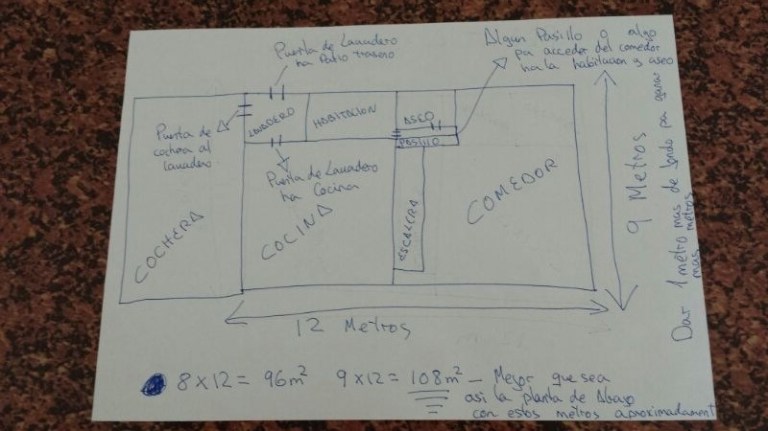 Puerta de Lavadero
ha Patio trasero
Algun Pasillo o algo
pa acceder del comedor
ha la habitacion y aseo
Puerta de
cochera al
lavadero
LAVADERO
HABITACION
ASEO
PASILLO
Puerta de Lavadero
ha Cocina
COCHERA
COCINA
ESCALERA
COMEDOR
9 Metros
Dar 1 metro mas de fondo pa ganar
mas metros
12 Metros
8 x 12 = 96m² 9 x 12 = 108m² - Mejor que sea
asi la planta de Abajo
con estos metros aproximadament